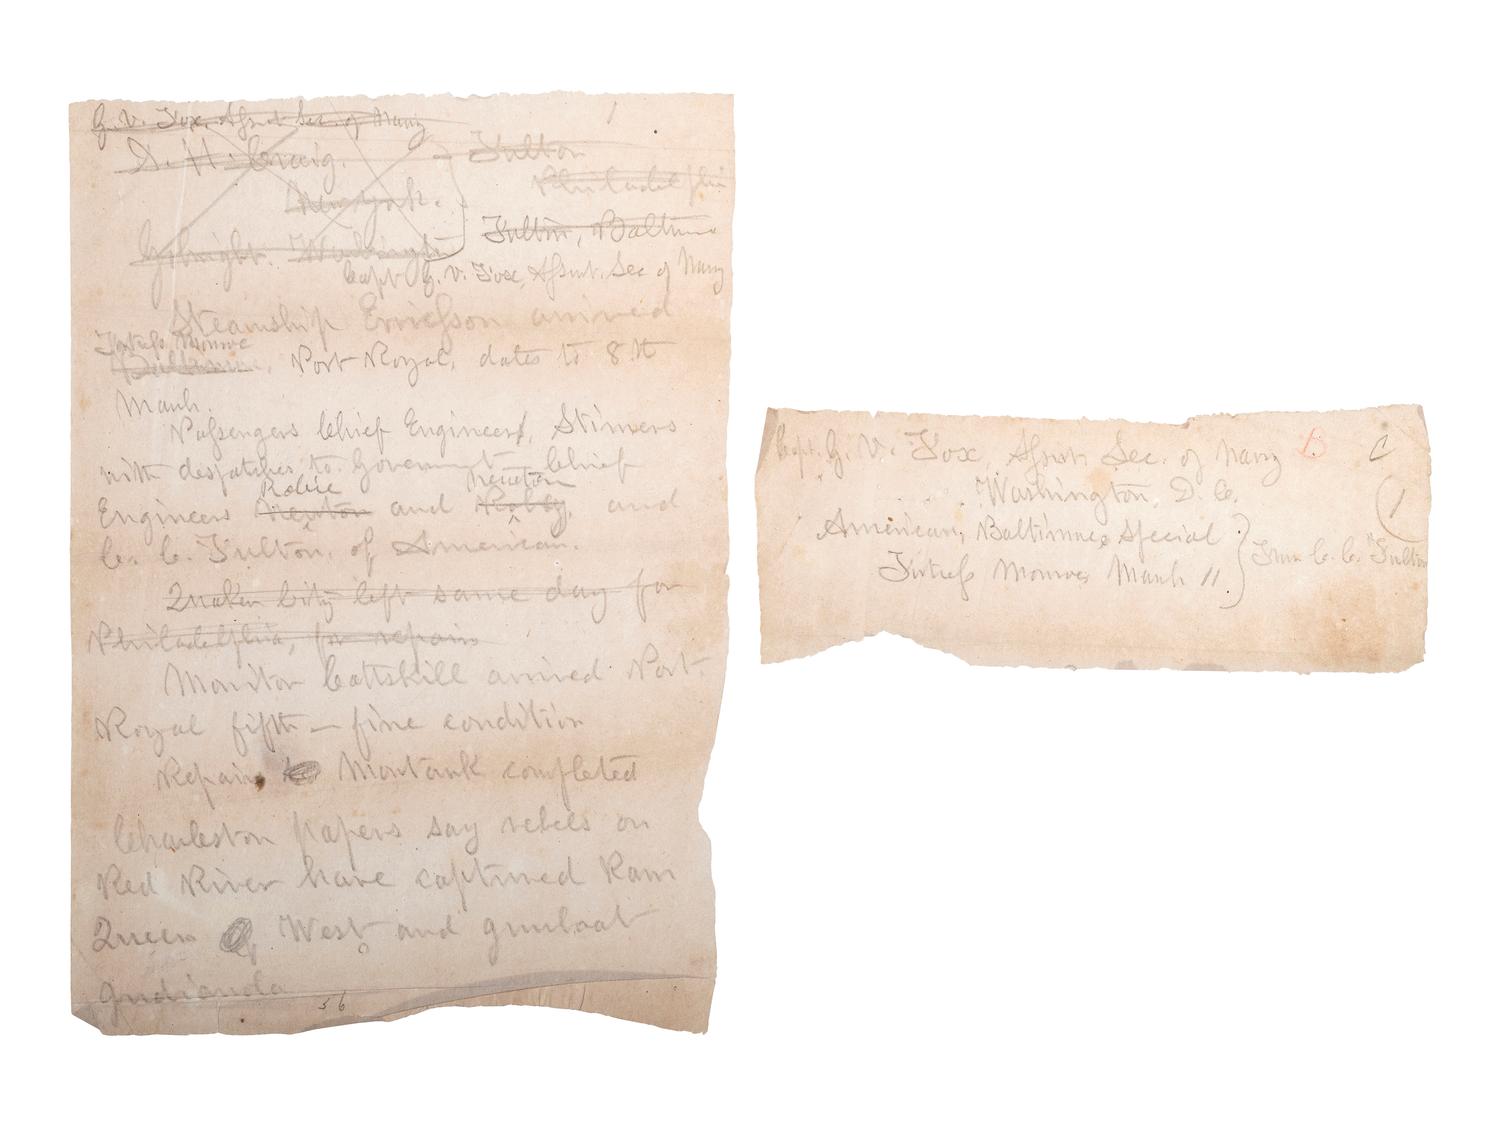 G. V. Fox, Assist. Sec. of Navy
1
D. H. Craig. - Fulton
Philadelphia
New York.
Fulton, Baltimore
Gobright. Washington
Capt G. V. Fox, Assist. Sec of Navy
Steamship Ericsson arrived
Fortress Monroe
Baltimore, Port Royal, dates to 8th
March.
Passengers Chief Engineer, Stimers
with despatches to Government Chief
Robie Newton
Engineers Newton and Robby, and
C. C. Fulton, of American.
Quaker City left same day for
Philadelphia, for repairs
Monitor Cattskill arrived Port
Royal fifth — fine condition
Repairs to Montauk completed
Charleston papers say rebels on
Red River have captured Ram
Queen of West and gunboat
Indianola
56
Capt. G. V. Fox, Assist. Sec. of Navy B C
Washington, D. C. 1
American, Baltimore, Special
From C. C. Fulton
Fortress Monroe, March 11